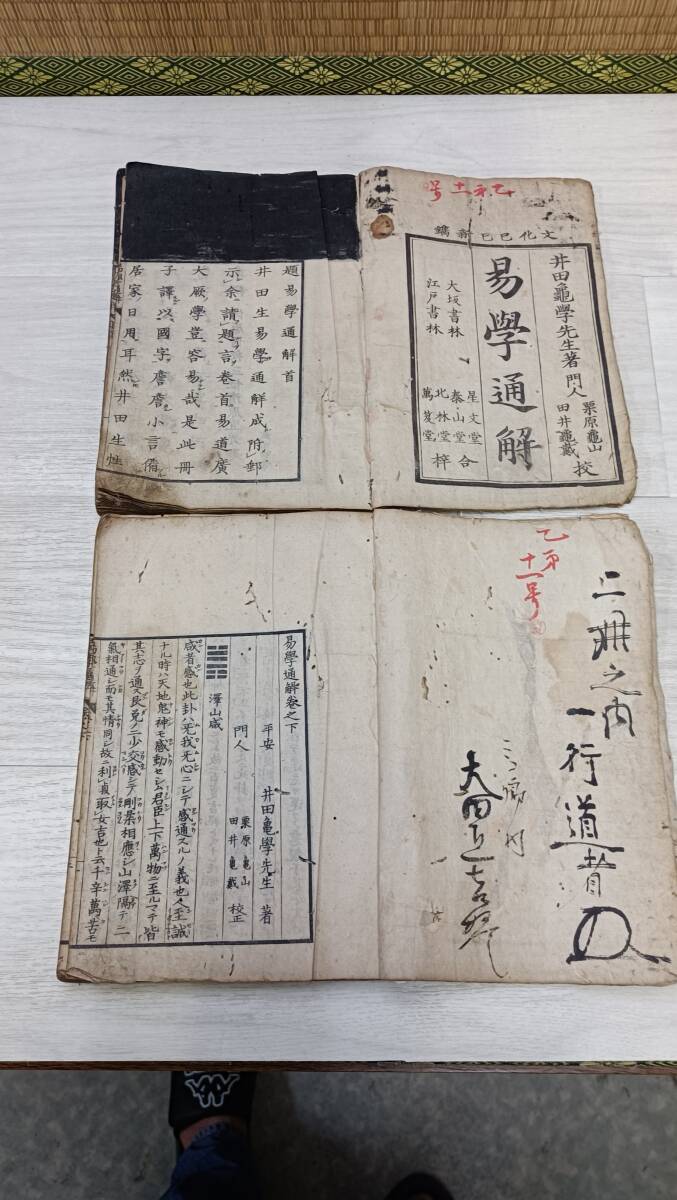 乙第十一号
文化己巳新鐫
井田龜學先生著 門人 栗原龜山 田井龜戴 校
易學通解
大坂書林
江戸書林
星文堂
泰山堂
北林堂
萬笈堂
合梓
題易學通解首
井田生易學通解成附郵
示余請題言卷首易道廣
大厥學豈容易哉是此冊
子譯以國字詹詹小言備
居家日用耳然井田生性
乙第十一号
二冊之内
一行道者
易學通解卷之下
平安 井田龜學先生 著
門人 栗原龜山 田井龜戴 校正
澤山咸
咸者感也此卦ハ无我无心ニシテ感通スルノ義也人至誠
ナル時ハ天地鬼神モ感動セシム君臣上下萬物ニ至ルマテ皆
其志ヲ通ス艮兌ノ二少交感シテ剛柔相應シ山澤隔テ二
氣相通シ而モ其情同シ故ニ利貞取女吉也ト云千辛萬苦モ